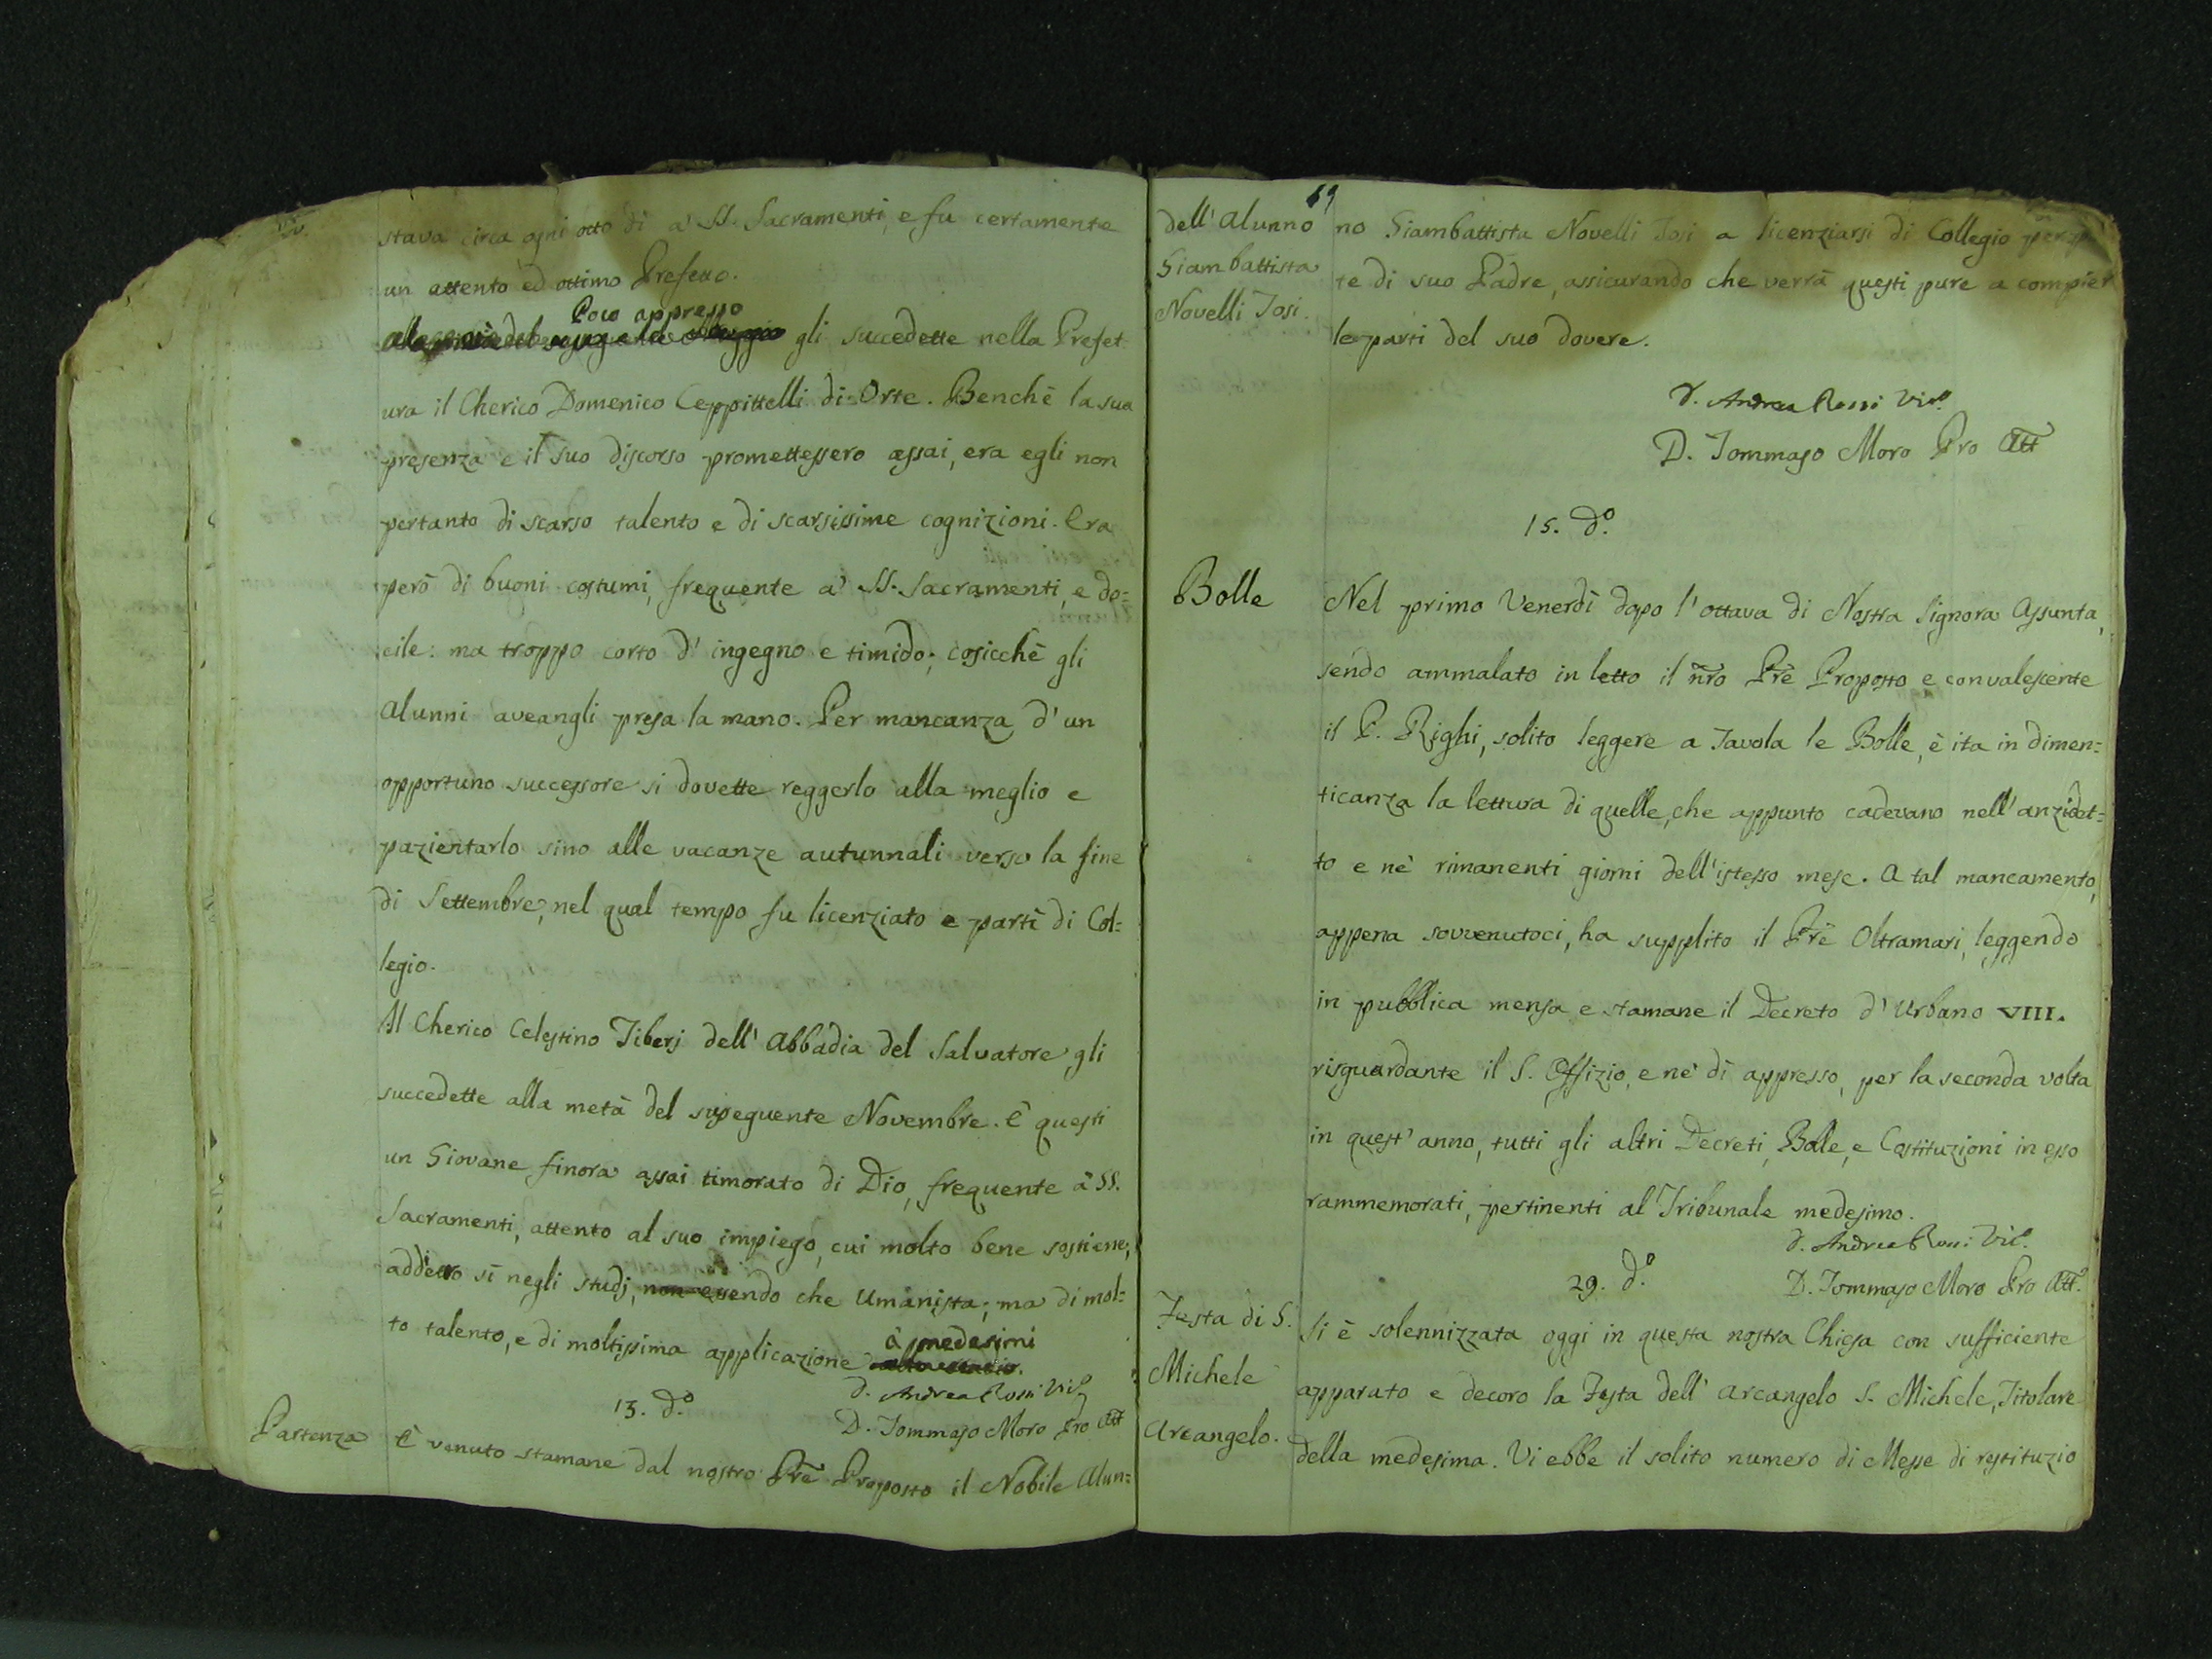 stava circa ogni otto dì a' SS. Sacramenti, e fu certamente
un attento ed ottimo Prefetto.
Poco appresso
gli succedette nella Prefet
ura il Cherico Domenico Ceppittelli di Orte. Benchè la sua
presenza e il suo discorso promettessero assai, era egli non
pertanto di scarso talento e di scarsissime cognizioni. Era
però di buoni costumi, frequente a' SS. Sacramenti, e do=
cile: ma troppo corto d' ingegno e timido; cosicchè gli
Alunni aveangli presa la mano. Per mancanza d' un
opportuno successore si dovette reggerlo alla meglio e
pazientarlo sino alle vacanze autunnali verso la fine
di Settembre, nel qual tempo fu licenziato e partì di Col=
legio.
Il Cherico Celestino Tiberj dell' Abbadia del Salvatore gli
succedette alla metà del susseguente Novembre. È questi
un Giovane finora assai timorato di Dio, frequente a' SS.
Sacramenti, attento al suo impiego, cui molto bene sostiene,
addetto sì negli studj, non essendo che Umanista; ma di mol=
to talento, e di moltissima applicazione
a' medesimi
D. Andrea Rossi Vic.o
13. d.o
D. Tommaso Moro Pro Att
Partenza
È venuto stamane dal nostro Pre Proposto il Nobile Alun=
19
dell' Alunno
Giambattista
Novelli Josi.
no Giambattista Novelli Josi a licenziarsi di Collegio per
te di suo Padre, assicurando che verrà questi pure a compier
le parti del suo dovere.
D. Andrea Rossi Vic.o
D. Tommaso Moro Pro Att
15. d.o
Bolle
Nel primo Venerdì dopo l' ottava di Nostra Signora Assunta,
sendo ammalato in letto il nro Pre Proposto e convalescente
il P. Righi, solito leggere a Tavola le Bolle, è ita in dimen=
ticanza la lettura di quelle, che appunto cadevano nell' anzidet=
to e ne' rimanenti giorni dell' istesso mese. A tal mancamento,
appena sovvenutoci, ha supplito il Pre Oltramari, leggendo
in pubblica mensa e stamane il Decreto d' Urbano VIII.
risguardante il S. Offizio, e ne' dì appresso, per la seconda volta
in quest' anno, tutti gli altri Decreti, Bolle, e Costituzioni in esso
rammemorati, pertinenti al Tribunale medesimo.
D. Andrea Rossi Vic.o
29. d.o
D. Tommaso Moro Pro Att.o
Festa di S.
Michele
Arcangelo.
Si è solennizzata oggi in questa nostra Chiesa con sufficiente
apparato e decoro la Festa dell' Arcangelo S. Michele, Titolare
della medesima. Vi ebbe il solito numero di Messe di restituzio